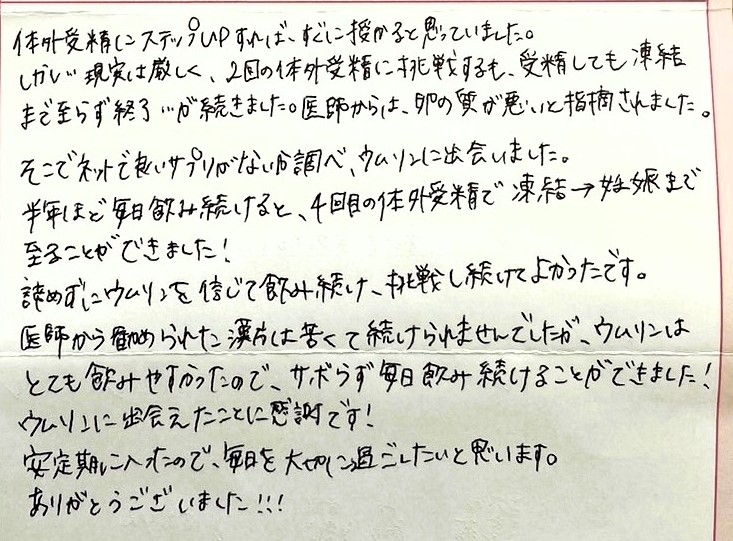 体外受精にステップUPすれば、すぐに授かると思っていました。
しかし現実は厳しく、2回の体外受精に挑戦するも、受精しても凍結
まで至らず終了…が続きました。医師からは、卵の質が悪いと指摘されました。
そこでネットで良いサプリがないか調べ、ウムリンに出会いました。
半年ほど毎日飲み続けると、4回目の体外受精で凍結→妊娠まで
至ることができました!
諦めずにウムリンを信じて飲み続け、挑戦し続けてよかったです。
医師から勧められた漢方は苦くて続けられませんでしたが、ウムリンは
とても飲みやすかったので、サボらず毎日飲み続けることができました!
ウムリンに出会えたことに感謝です!
安定期に入ったので、毎日を大切に過ごしたいと思います。
ありがとうございました!!!